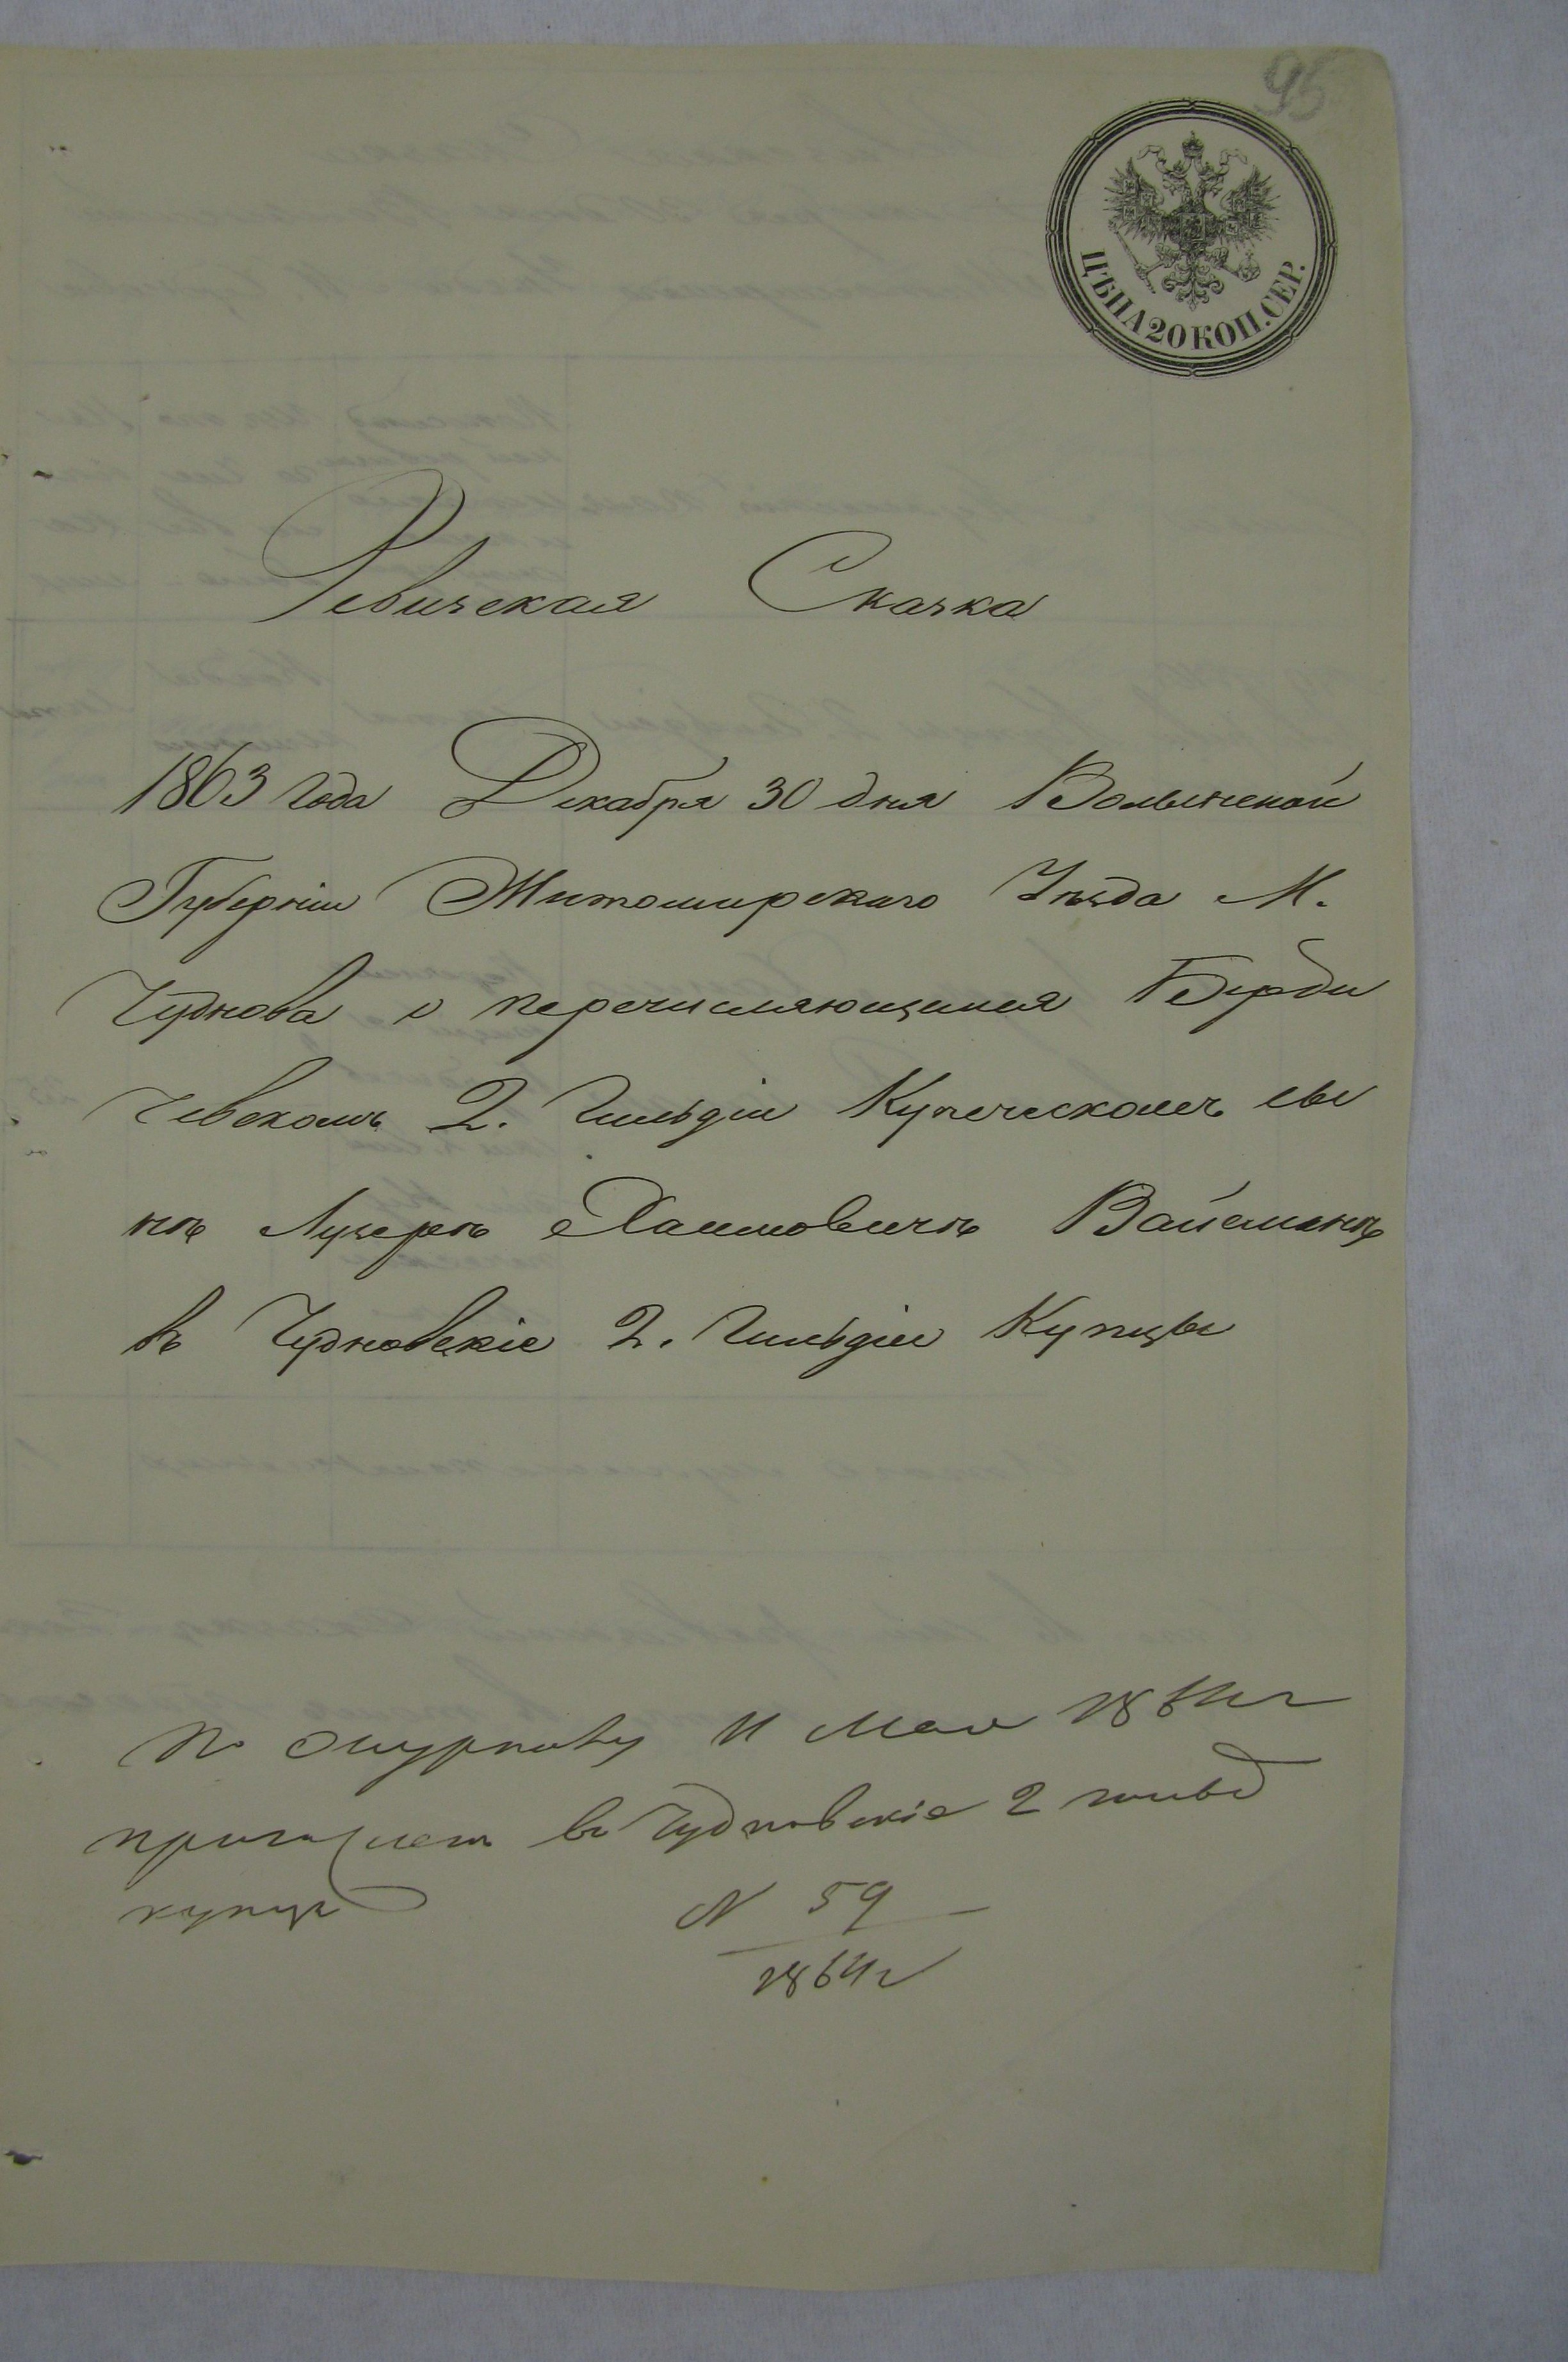 95
ЦѢНА 20 КОП. СЕР.
Ревизская Сказка
1863 года Декабря 30 дня Волынской
Губерніи Житомирскаго Уѣзда М.
Чуднова о перечисляющимся Берди
чевскомъ 2. Гильдіи Купеческомъ сы
нѣ Лузерѣ Хаимовичѣ Вайсманѣ
въ Чудновскіе 2. Гильдіи Купцы
По журналу 11 Мая 1864 г
въ Чудновскіе 2 гильд
купцы
N 59
1864 г